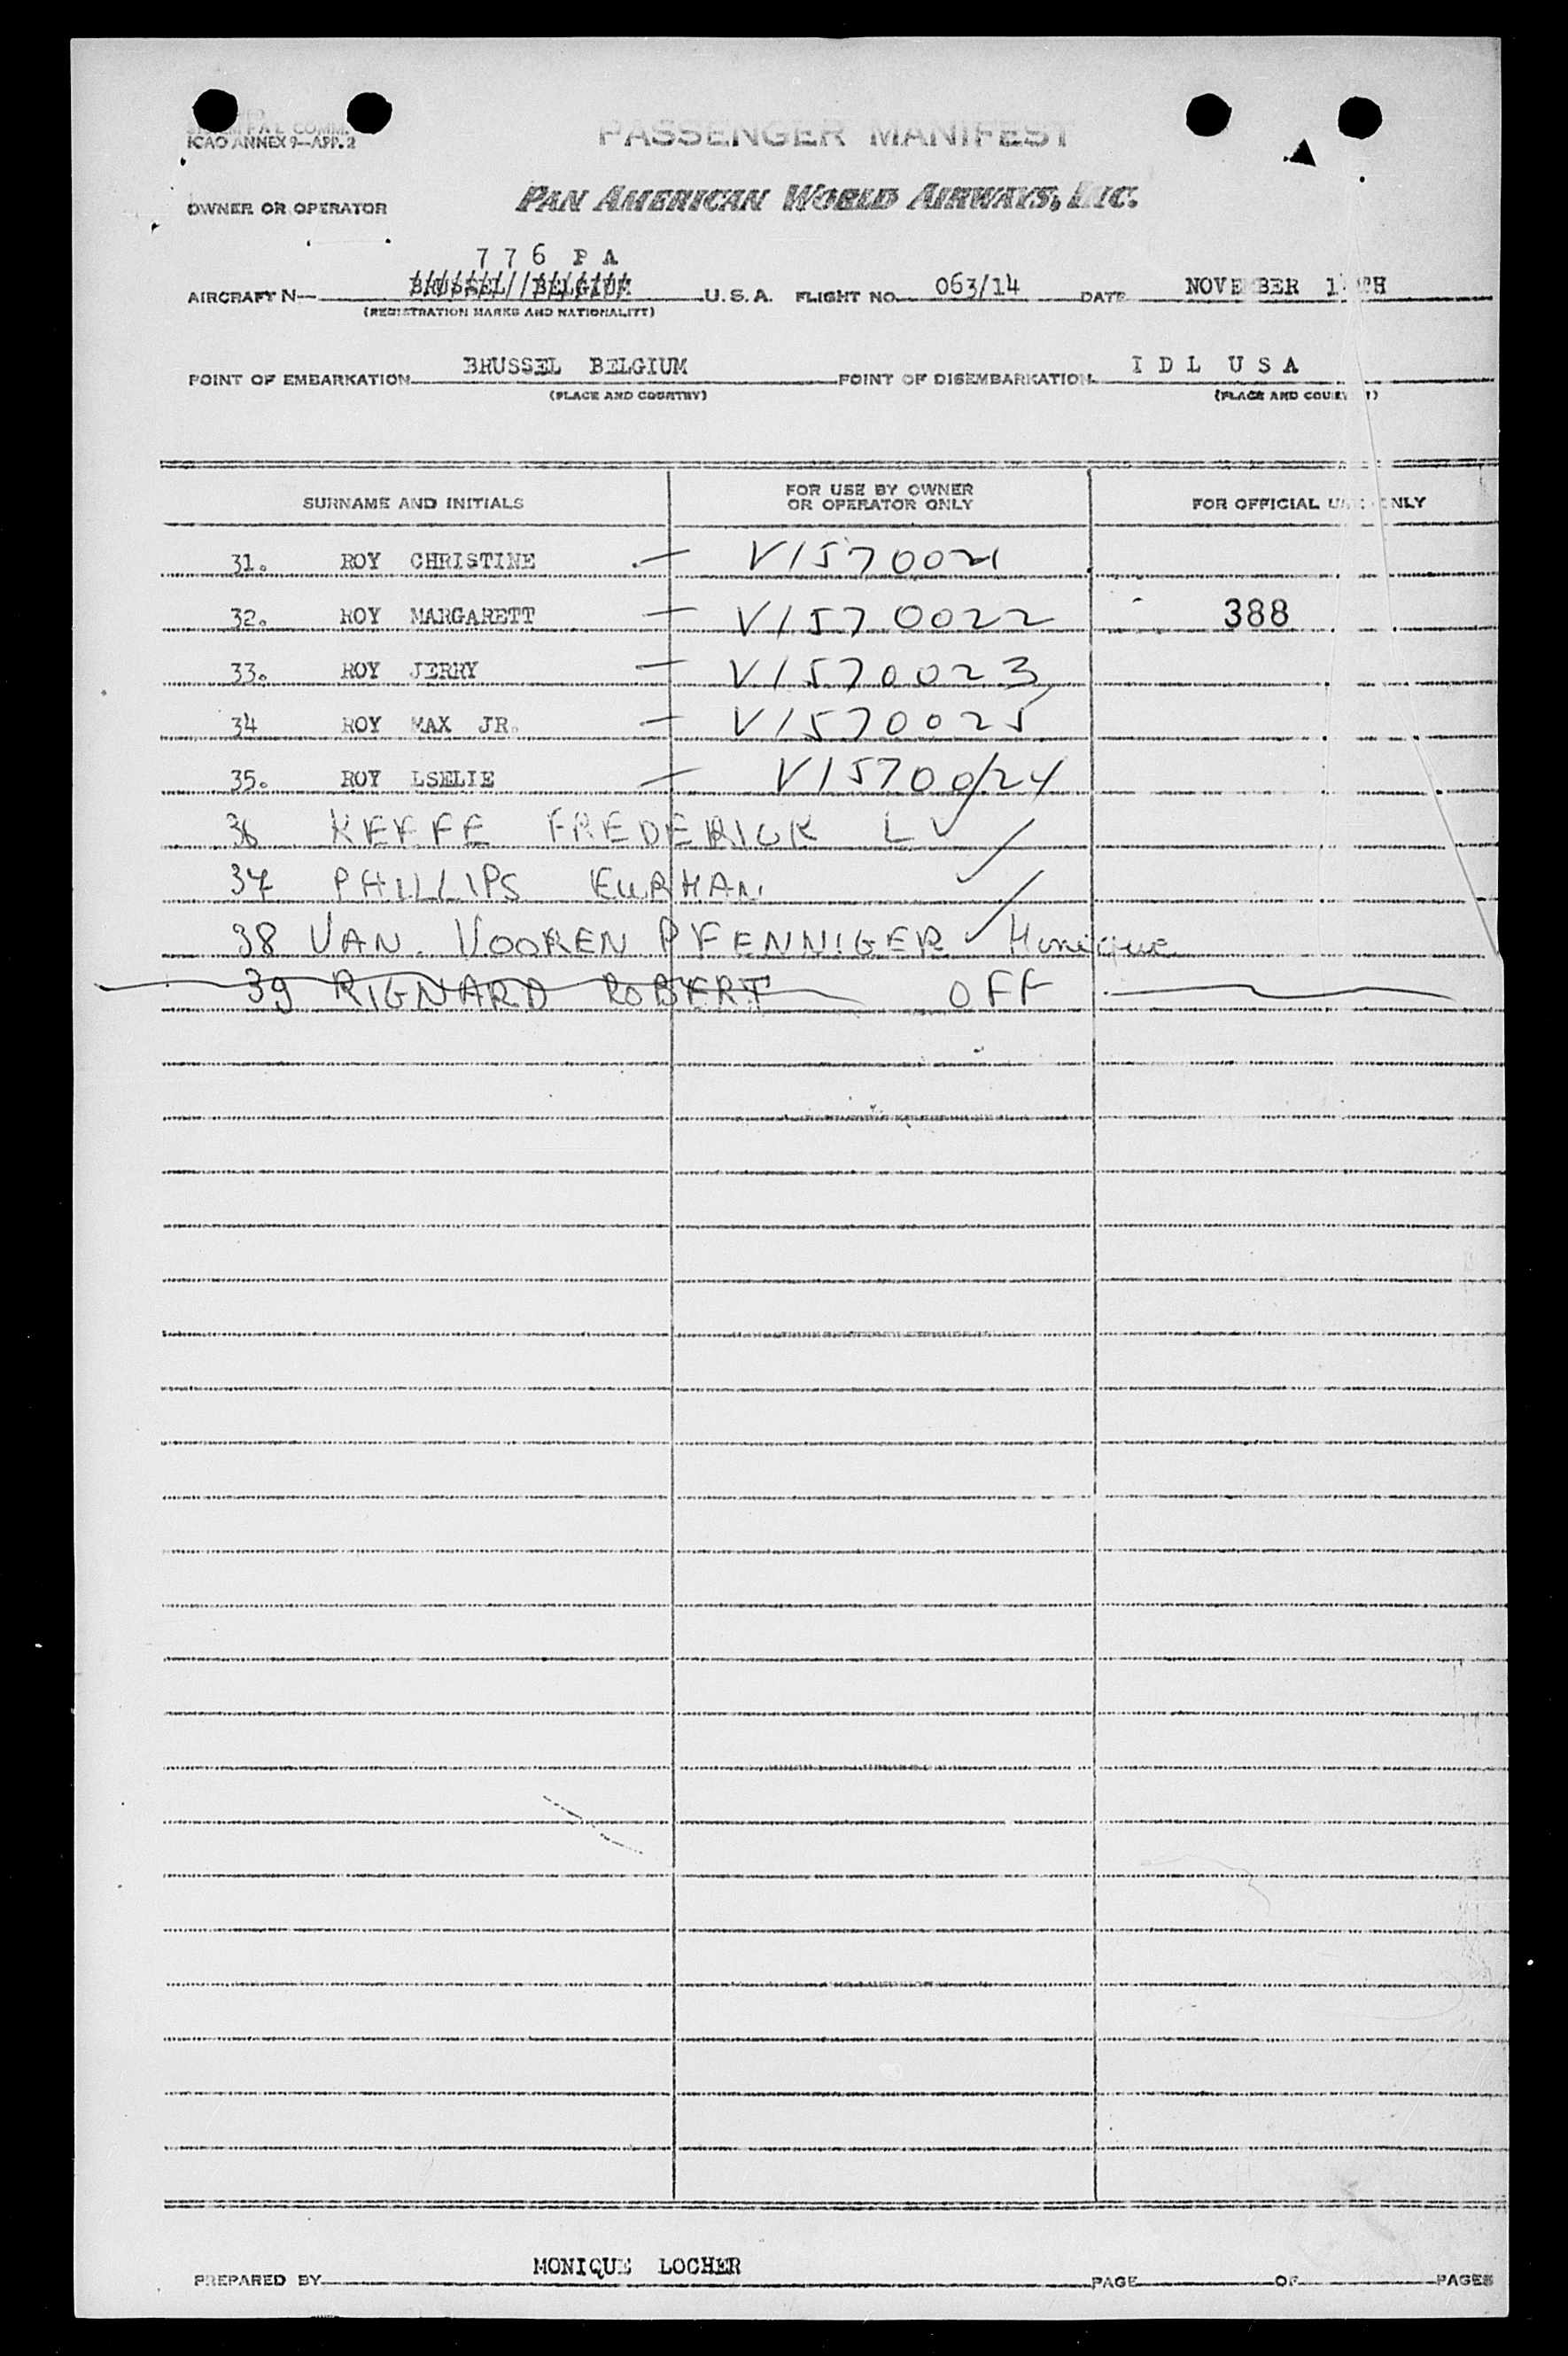 ICAO ANNEX 9—APP. 2
PASSENGER MANIFEST
OWNER OR OPERATOR PAN AMERICAN WORLD AIRWAYS, INC.
7 7 6 P A
AIRCRAFT N— BRUSSEL BELGIUM U. S. A. FLIGHT NO. 063/14 DATE NOVEMBER
(REGISTRATION MARKS AND NATIONALITY)
POINT OF EMBARKATION BRUSSEL BELGIUM POINT OF DISEMBARKATION I D L U S A
(PLACE AND COUNTRY) (PLACE AND COUNTRY)
SURNAME AND INITIALS FOR USE BY OWNER OR OPERATOR ONLY FOR OFFICIAL USE ONLY
31. ROY CHRISTINE — V1570021
32. ROY MARGARETT — V1570022 388
33. ROY JERRY — V1570023
34 ROY MAX JR. — V1570025
35. ROY LSELIE — V1570024
36 KEEFE FREDERICK L ✓
37 PHILLIPS ✓
38 VAN. VOOREN PFENNIGER ✓ Monique
39 RIGNARD ROBERT OFF
PREPARED BY MONIQUE LOCHER PAGE OF PAGES